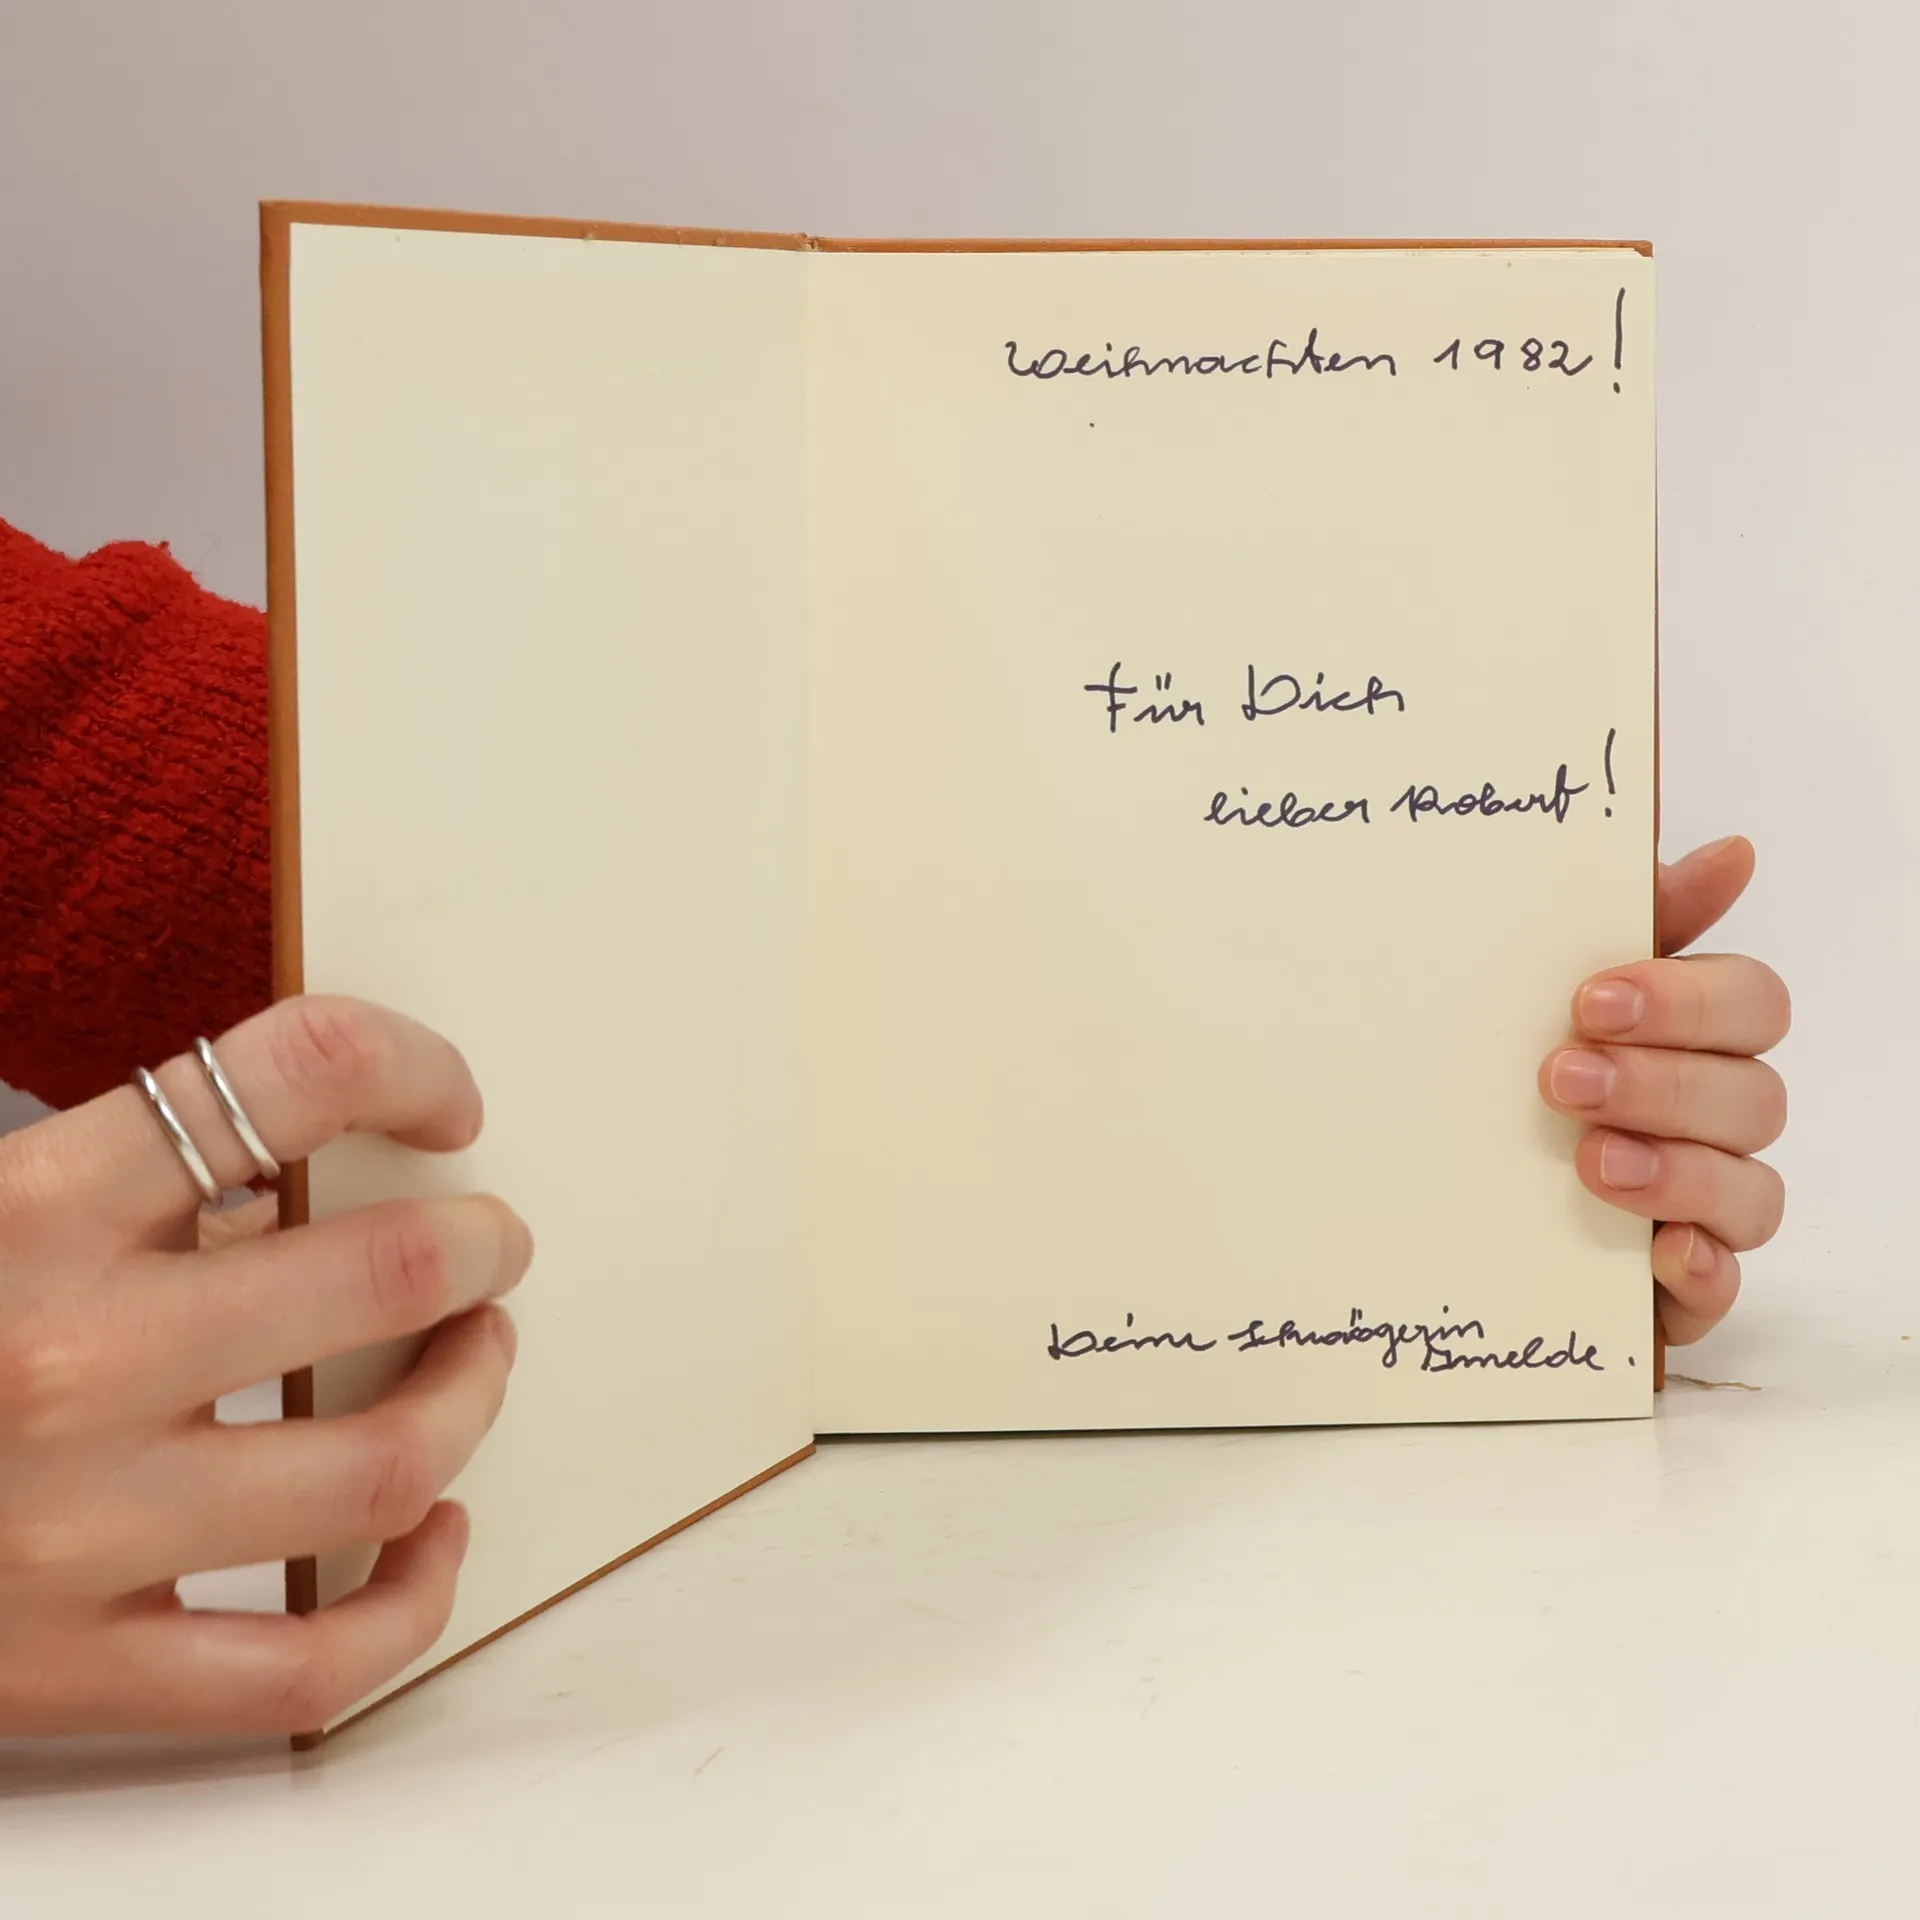 Weihnachten 1982!
Für Dich
lieber Robert!
Deine Schwägerin
Imelde.